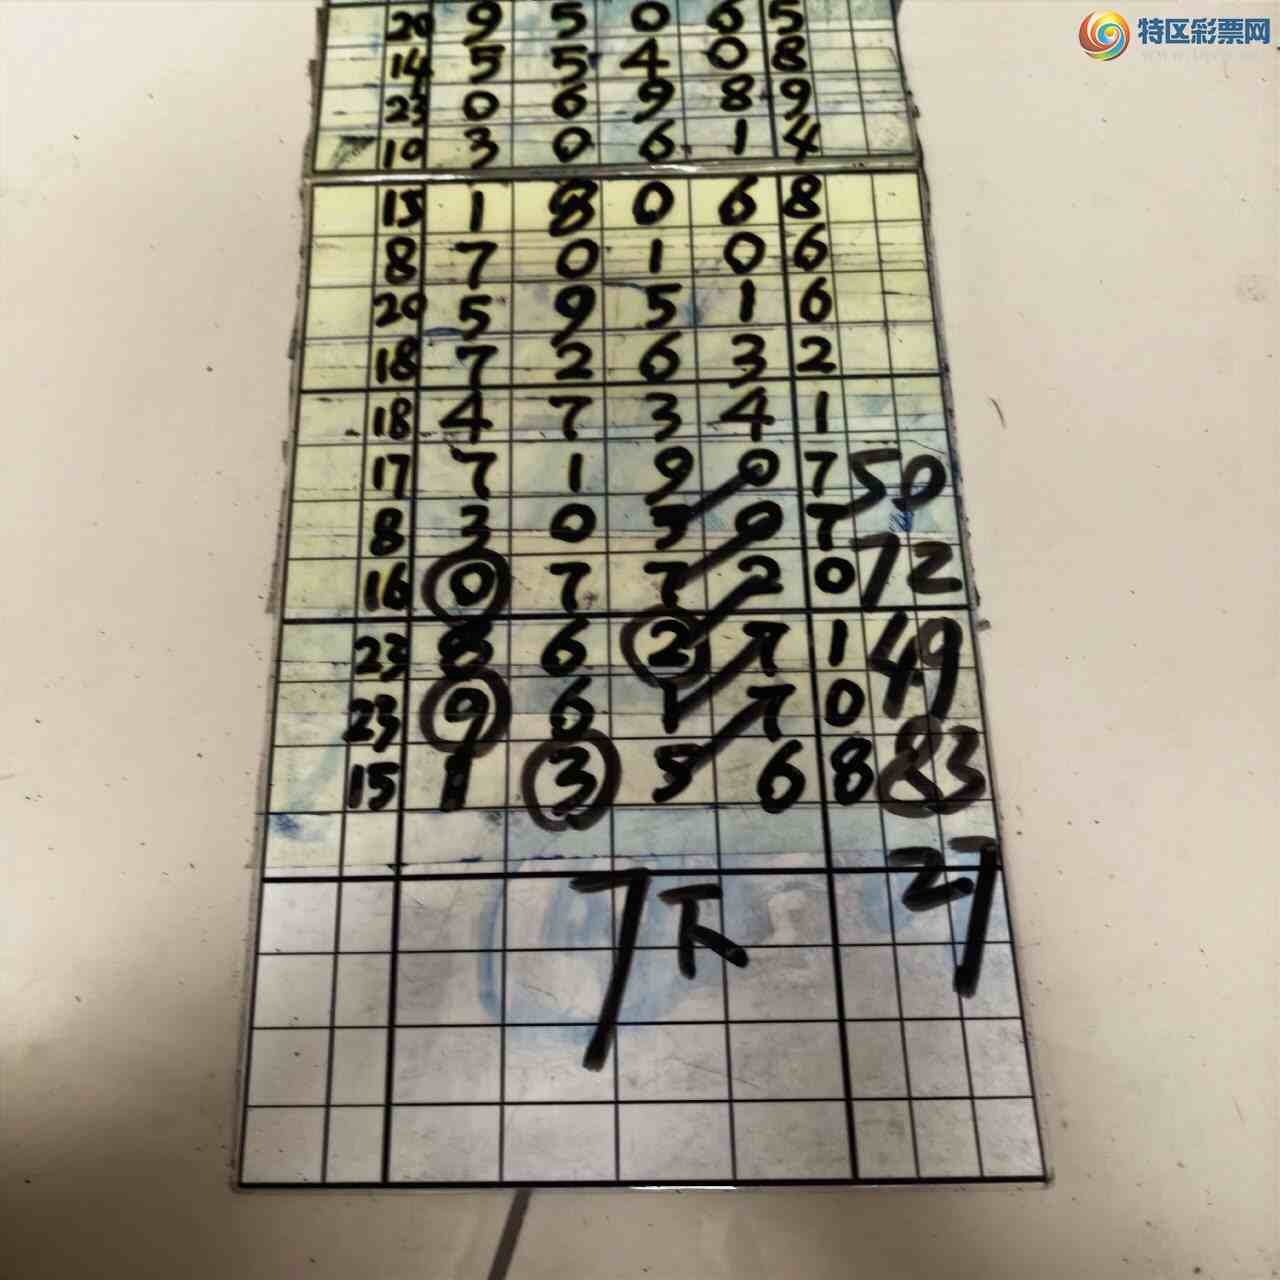 特区彩票网
20 9 5 0 6 5
14 5 5 4 0 8
23 0 6 9 8 9
10 3 0 6 1 4
15 1 8 0 6 8
8 7 0 1 0 6
20 5 9 5 1 6
18 7 2 6 3 2
18 4 7 3 4 1
17 7 1 9 0 7 50
8 3 0 5 0 7
16 0 7 7 2 0 72
23 8 6 2 7 1 49
23 9 6 1 7 0
15 1 3 5 6 8 83
27
7下